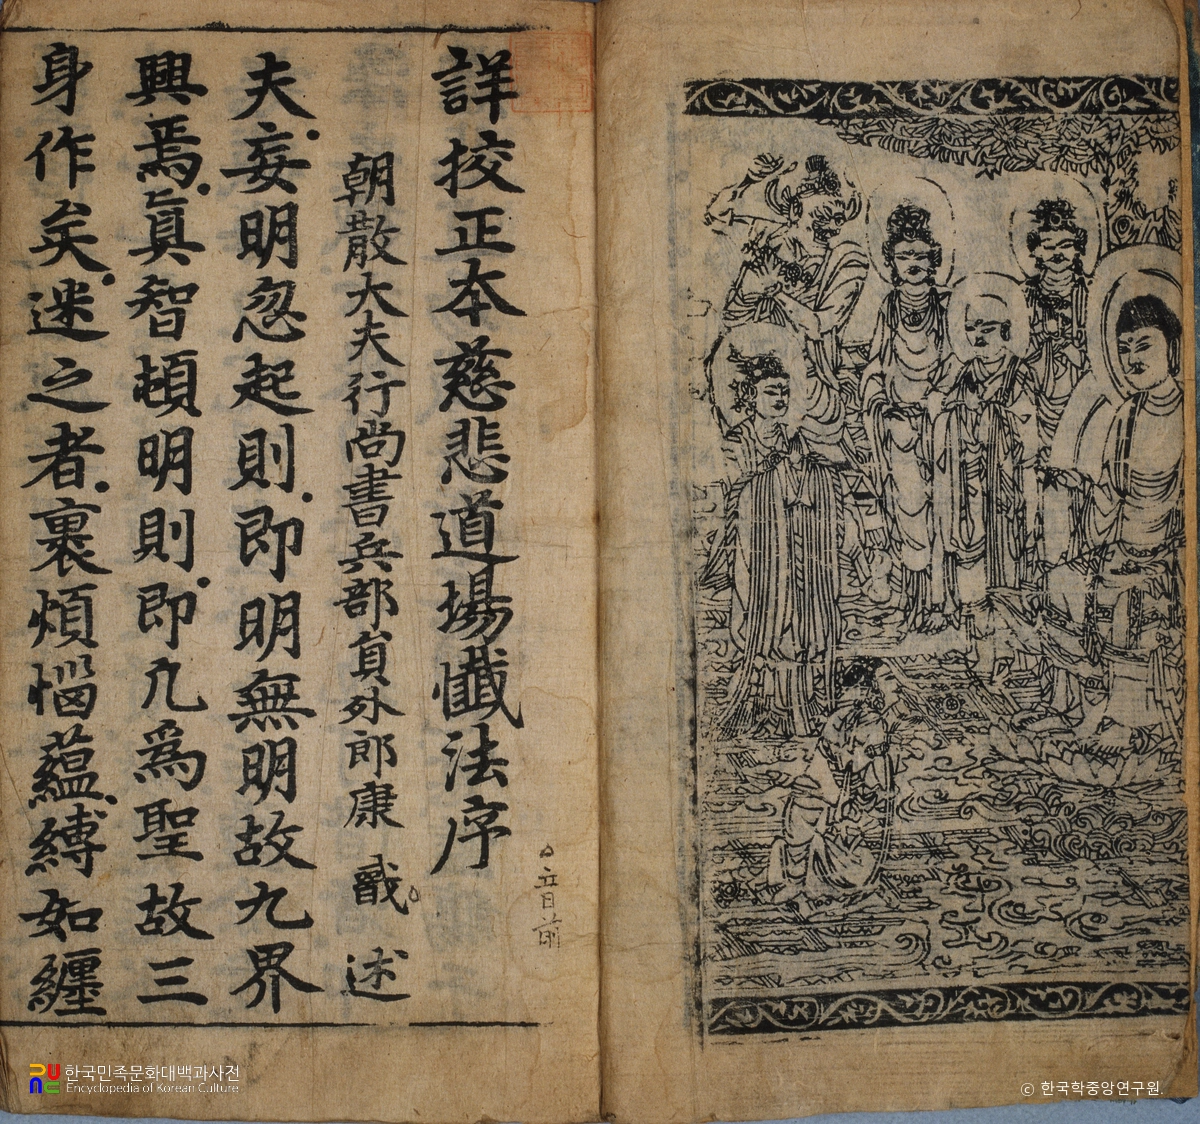 詳挍正本慈悲道場懺法序
朝散大夫行尚書兵部貟外郎康 戩 述
夫妄明忽起則即明無明故九界
興焉眞智頓明則即凢爲聖故三
身作矣迷之者裹煩惱蘊縛如纏
한국민족문화대백과사전
Encyclopedia of Korean Culture
ⓒ 한국학중앙연구원.